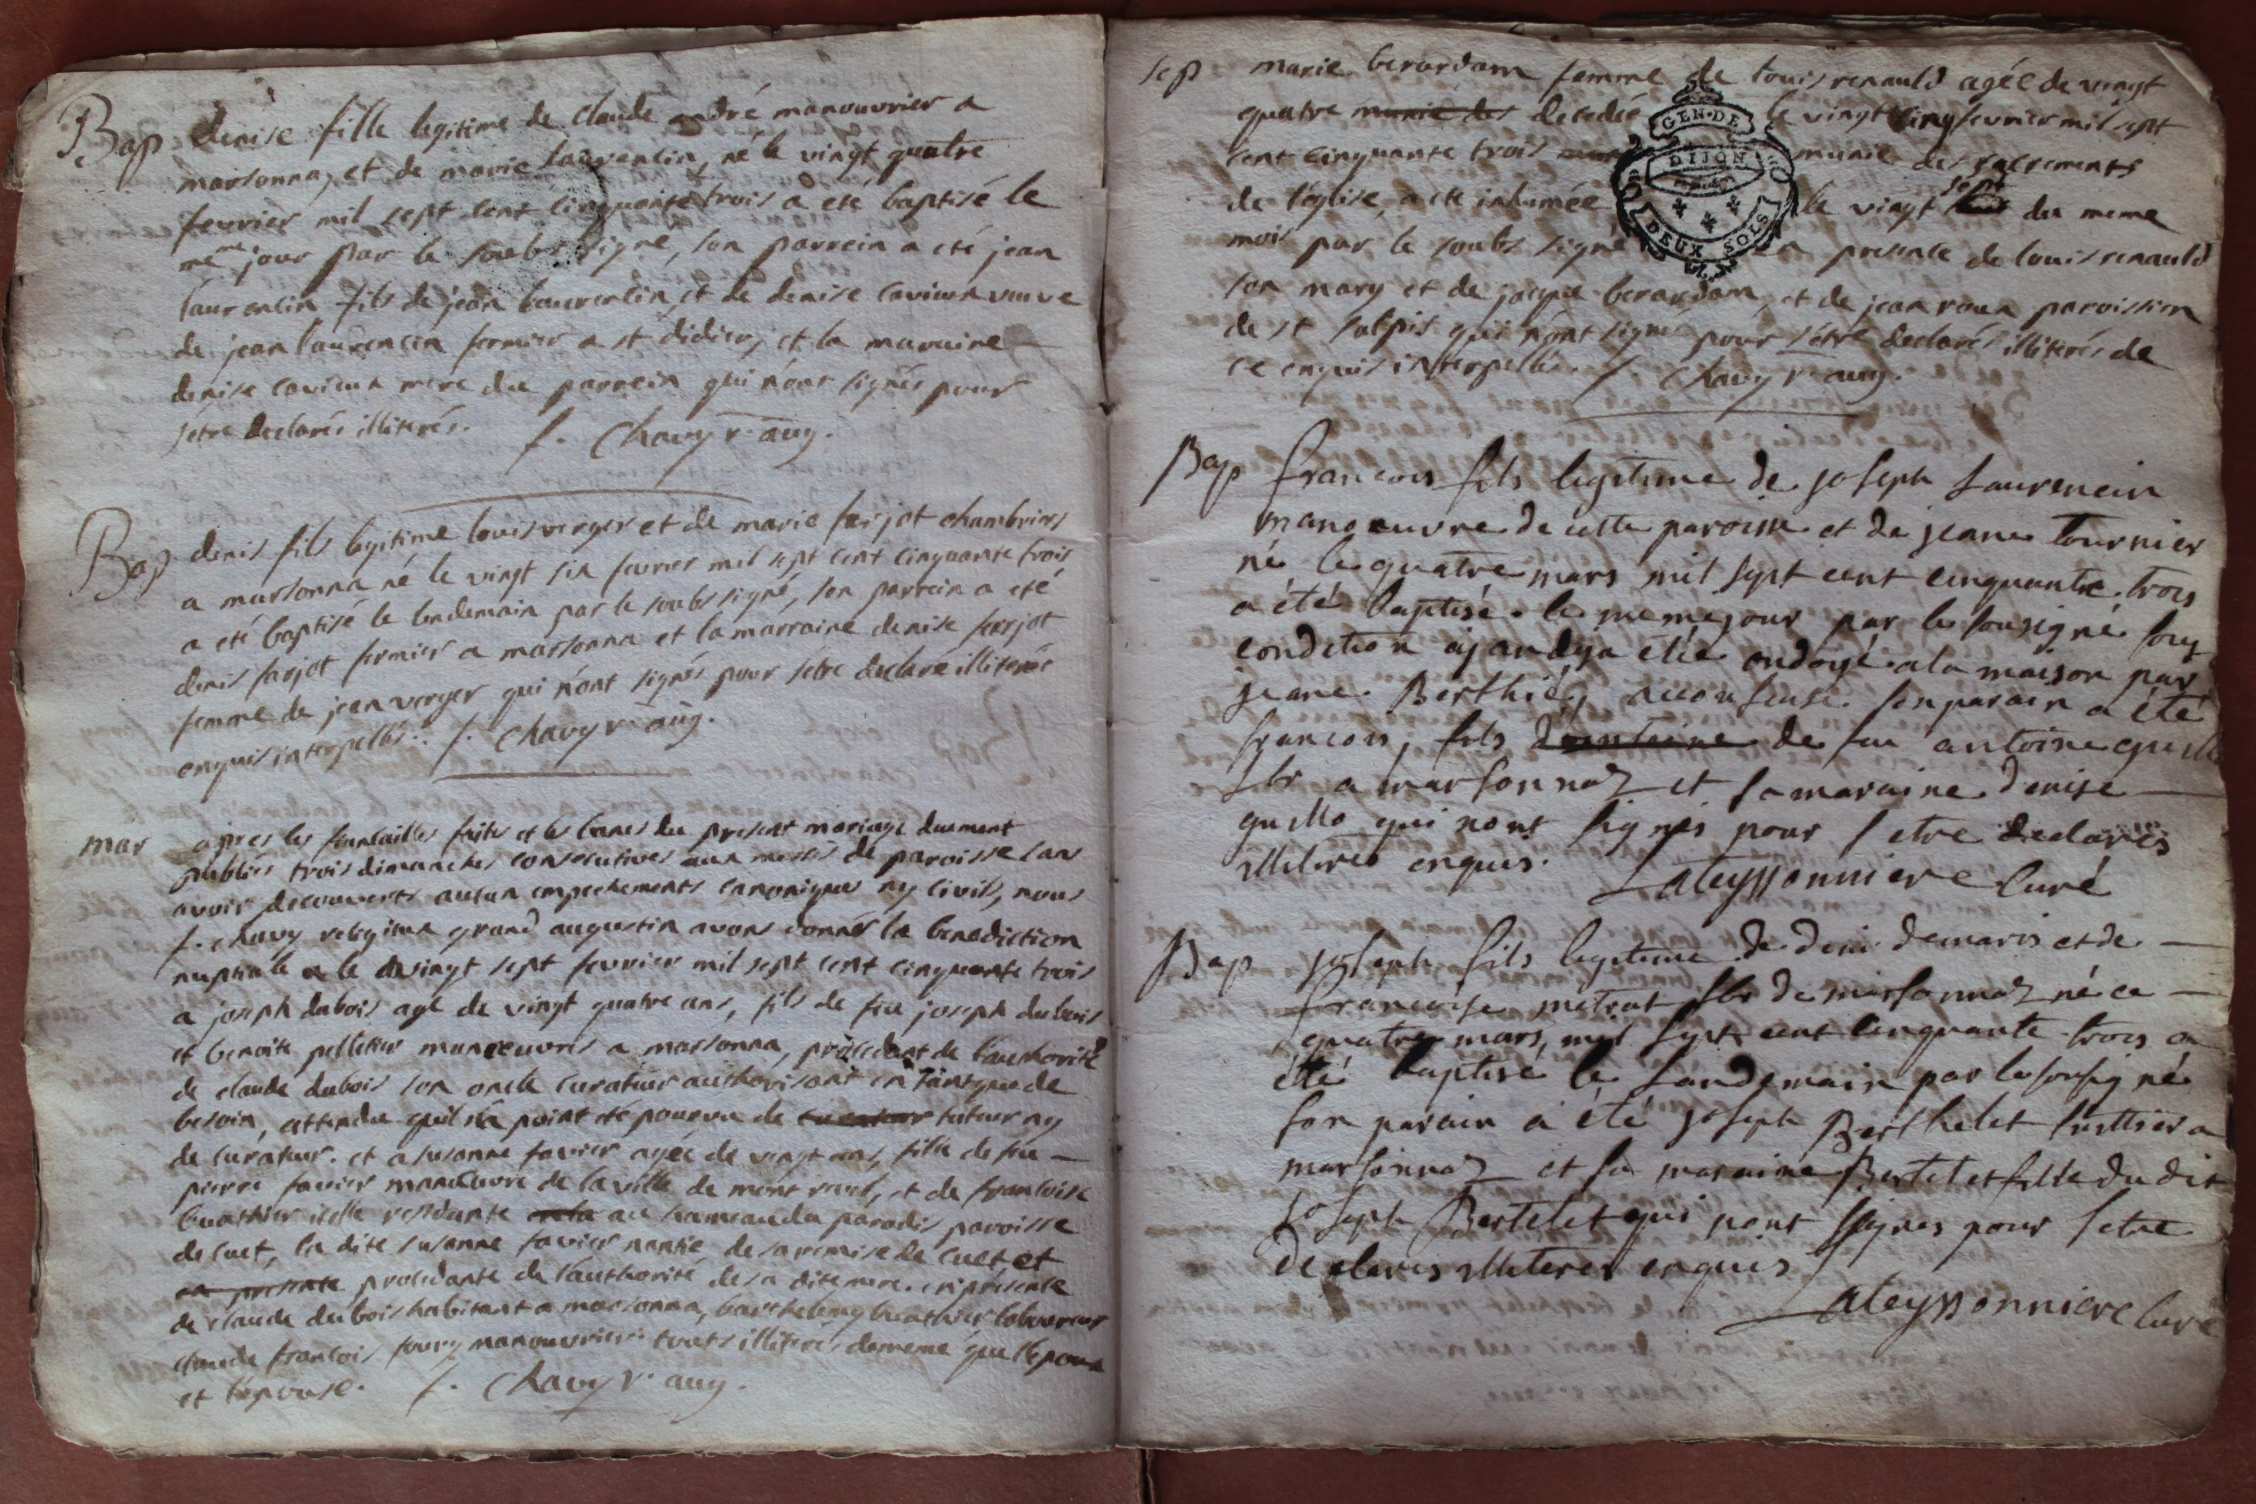 Bap denise fille legitime de claude andré manouvrier a
marsonna, et de marie laurencin, né le vingt quatre
fevrier mil sept cent cinquante trois a eté baptisé le
meme jour par le soubs signé, son parrein a eté jean
laurencin fils de jean laurencin et de denise cavieux veuve
de jean laurencin fermier a st didier, et la maraine
denise cavieux mere du parrein qui n'ont signés pour
s'etre declarés illiterés. f. Chavy r. aug.
Bap denis fils legitime louis verger et de marie farjot chambriers
a marsonna né le vingt six fevrier mil sept cent cinquante trois
a eté baptisé le lendemain par le soubs signé, son parrein a eté
denis farjot fermier a marsonna et la marraine denise farjot
femme de jean verger qui n'ont signés pour s'etre declaré illiterés
enquis interpellés. f. Chavy r. aug.
mar apres les fiancailles faites et les bancs du present mariage duement
publiés trois dimanches consecutives aux messes de paroisse sans
avoir decouverts aucun empechements canonique ny civils, nous
f. chavy religieux grand augustin avons donnés la benediction
nuptiale le vingt sept fevrier mil sept cent cinquante trois
a joseph dubois agé de vingt quatre ans, fils de feu joseph dubois
et benoite pelletier manoeuvres a marsonna, procedant de l'authorité
de claude dubois son oncle curateur authorisant en tant que de
besoin, attendu qu'il n'a point eté pourvu de curateur tuteur ny
de curateur. et a susanne favier agée de vingt ans, fille de feu
pierre favier manoeuvre de la ville de mont revel, et de francoise
buathier icelle residante au hameau du paradis paroisse
de cuet, la dite susanne favier nantie de sa remise de cuet et
en presence procedante de l'authorité de sa dite mere. en présence
de claude dubois habitant a marsonna, barthelemy buathier laboureur
claude francois foury manouvrier touts illiterés de meme que l'epoux
et l'epouse. f. Chavy r. aug.
sep marie berardam femme de louis renauld agée de vingt
quatre munie des decedée le vingt cinq fevrier mil sept
cent cinquante trois munie des sacrements
de l'église, a eté inhumée le vingt sept du meme
mois par le soubs signé en presence de louis renauld
son mary et de jacque berardam, et de jean roux paroissien
de st sulpis qui n'ont signé pour s'etre declarés illiterés de
ce enquis interpellés. f. Chavy r. aug.
GEN. DE
DIJON
DEUX SOLS
Bap francois fils legitime de joseph Laurencin
manoeuvre de cette paroisse et de jeane tournier
né le quatre mars mil sept cent cinquante trois
a été baptisé le meme jour par le sousigné sous
condition ajandeja étée ondoyé a la maison par
jeane Berthié, accouseuse. son parain a été
francois, fils d'antoine de feu antoine guillo
a marsonnaz et sa maraine denise
guillo qui nont signés pour s etre declarés
illiteres enquis. Lateyssonniere Curé
Bap joseph fils legitime de deni demaris et de
francoise metrat de marsonnaz né ce
quatre mars, mil sept cent cinquante trois a
été baptisé le landemain par le sousigné
son parain a été joseph Berthelet
marsonnaz et sa maraine Bertelet fille du dit
joseph Bertelet qui nont signes pour s etre
declares illiteres enquis
Lateyssonniere Curé